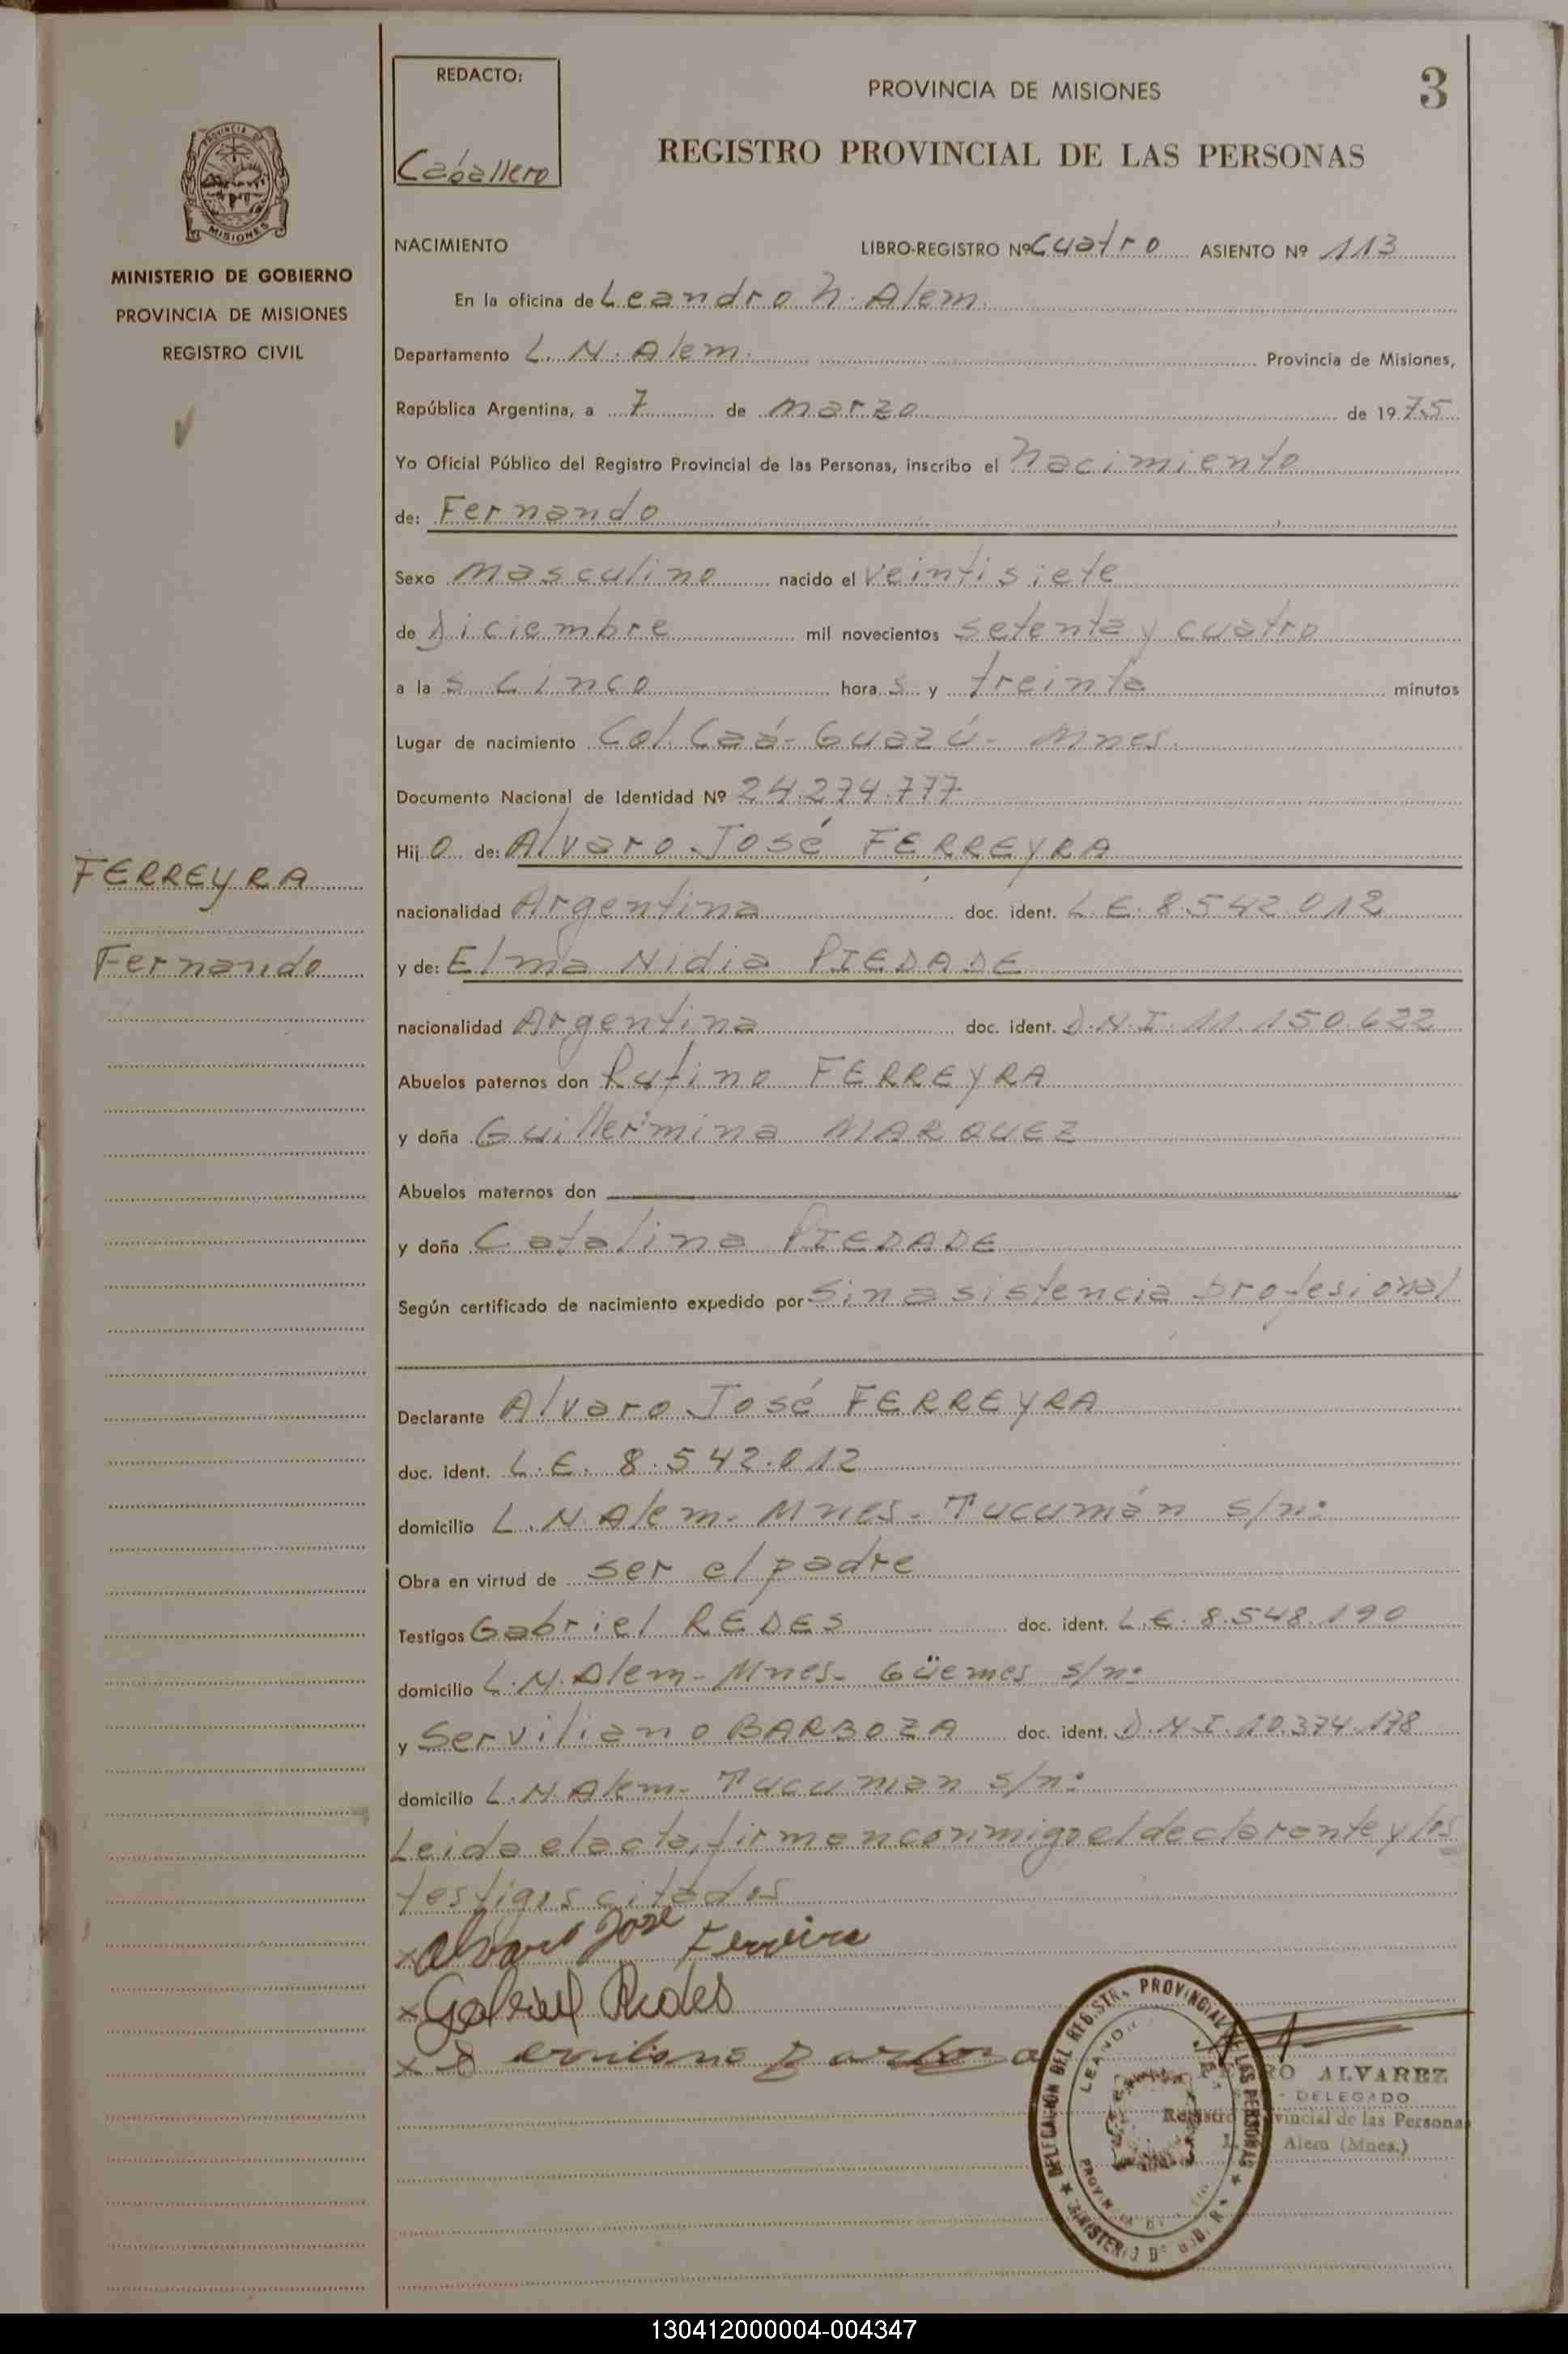 REDACTO:
Caballero
PROVINCIA DE MISIONES
3
REGISTRO PROVINCIAL DE LAS PERSONAS
PROVINCIA DE
MISIONES
MINISTERIO DE GOBIERNO
PROVINCIA DE MISIONES
REGISTRO CIVIL
NACIMIENTO LIBRO-REGISTRO Nº Cuatro ASIENTO Nº 113
En la oficina de Leandro N. Alem.
Departamento L. N. Alem. Provincia de Misiones,
República Argentina, a 7 de marzo de 1975
Yo Oficial Público del Registro Provincial de las Personas, inscribo el Nacimiento
de: Fernando
Sexo masculino nacido el veintisiete
de Diciembre mil novecientos setenta y cuatro
a las cinco horas y treinta minutos
Lugar de nacimiento Col. Caá-Guazú- Mnes.
Documento Nacional de Identidad Nº 24.274.777
Hijo de: Alvaro José FERREYRA
FERREYRA
nacionalidad Argentina doc. ident. L.E. 8.542.012
Fernando
y de: Elma Nidia PIEDADE
nacionalidad Argentina doc. ident. D.N.I. 11.150.622
Abuelos paternos don Rufino FERREYRA
y doña Guillermina MARQUEZ
Abuelos maternos don
y doña Catalina PIEDADE
Según certificado de nacimiento expedido por sin asistencia profesional
Declarante Alvaro José FERREYRA
doc. ident. L.E. 8.542.012
domicilio L.N.Alem- Mnes- Tucumán s/nº
Obra en virtud de ser el padre
Testigos Gabriel REDES doc. ident. L.E. 8.548.190
domicilio L.N.Alem- Mnes- Güemes s/nº
y Serviliano BARBOZA doc. ident. D.N.I. 10.374.178
domicilio L.N.Alem- Tucuman s/nº
Leida el acta, firman conmigo el declarante y los
testigos citados
x Alvaro José Ferreira
x Gabriel Redes
x Serviliano Barboza
DELEGACIÓN DEL REGISTR. PROVINCIAL DE LAS PERSONAS
RO ALVAREZ
DELEGADO
Registro vincial de las Personas
Alem (Mnes.)
130412000004-004347